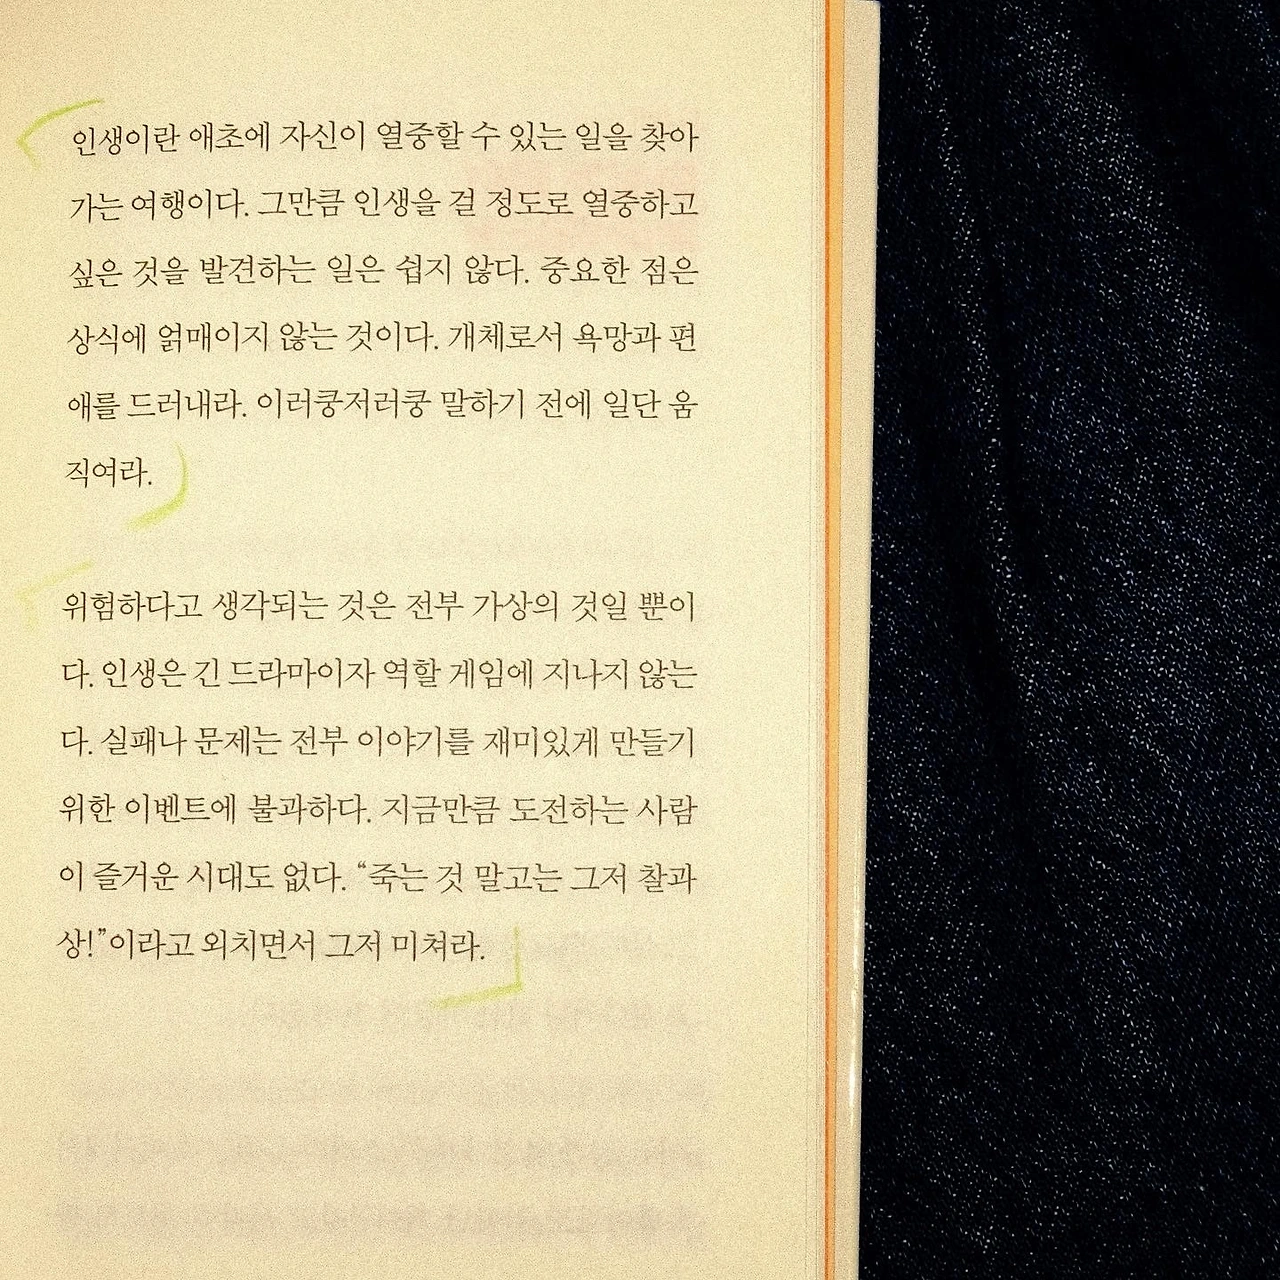 인생이란 애초에 자신이 열중할 수 있는 일을 찾아
가는 여행이다. 그만큼 인생을 걸 정도로 열중하고
싶은 것을 발견하는 일은 쉽지 않다. 중요한 점은
상식에 얽매이지 않는 것이다. 개체로서 욕망과 편
애를 드러내라. 이러쿵저러쿵 말하기 전에 일단 움
직여라.
위험하다고 생각되는 것은 전부 가상의 것일 뿐이
다. 인생은 긴 드라마이자 역할 게임에 지나지 않는
다. 실패나 문제는 전부 이야기를 재미있게 만들기
위한 이벤트에 불과하다. 지금만큼 도전하는 사람
이 즐거운 시대도 없다. “죽는 것 말고는 그저 찰과
상!”이라고 외치면서 그저 미쳐라.